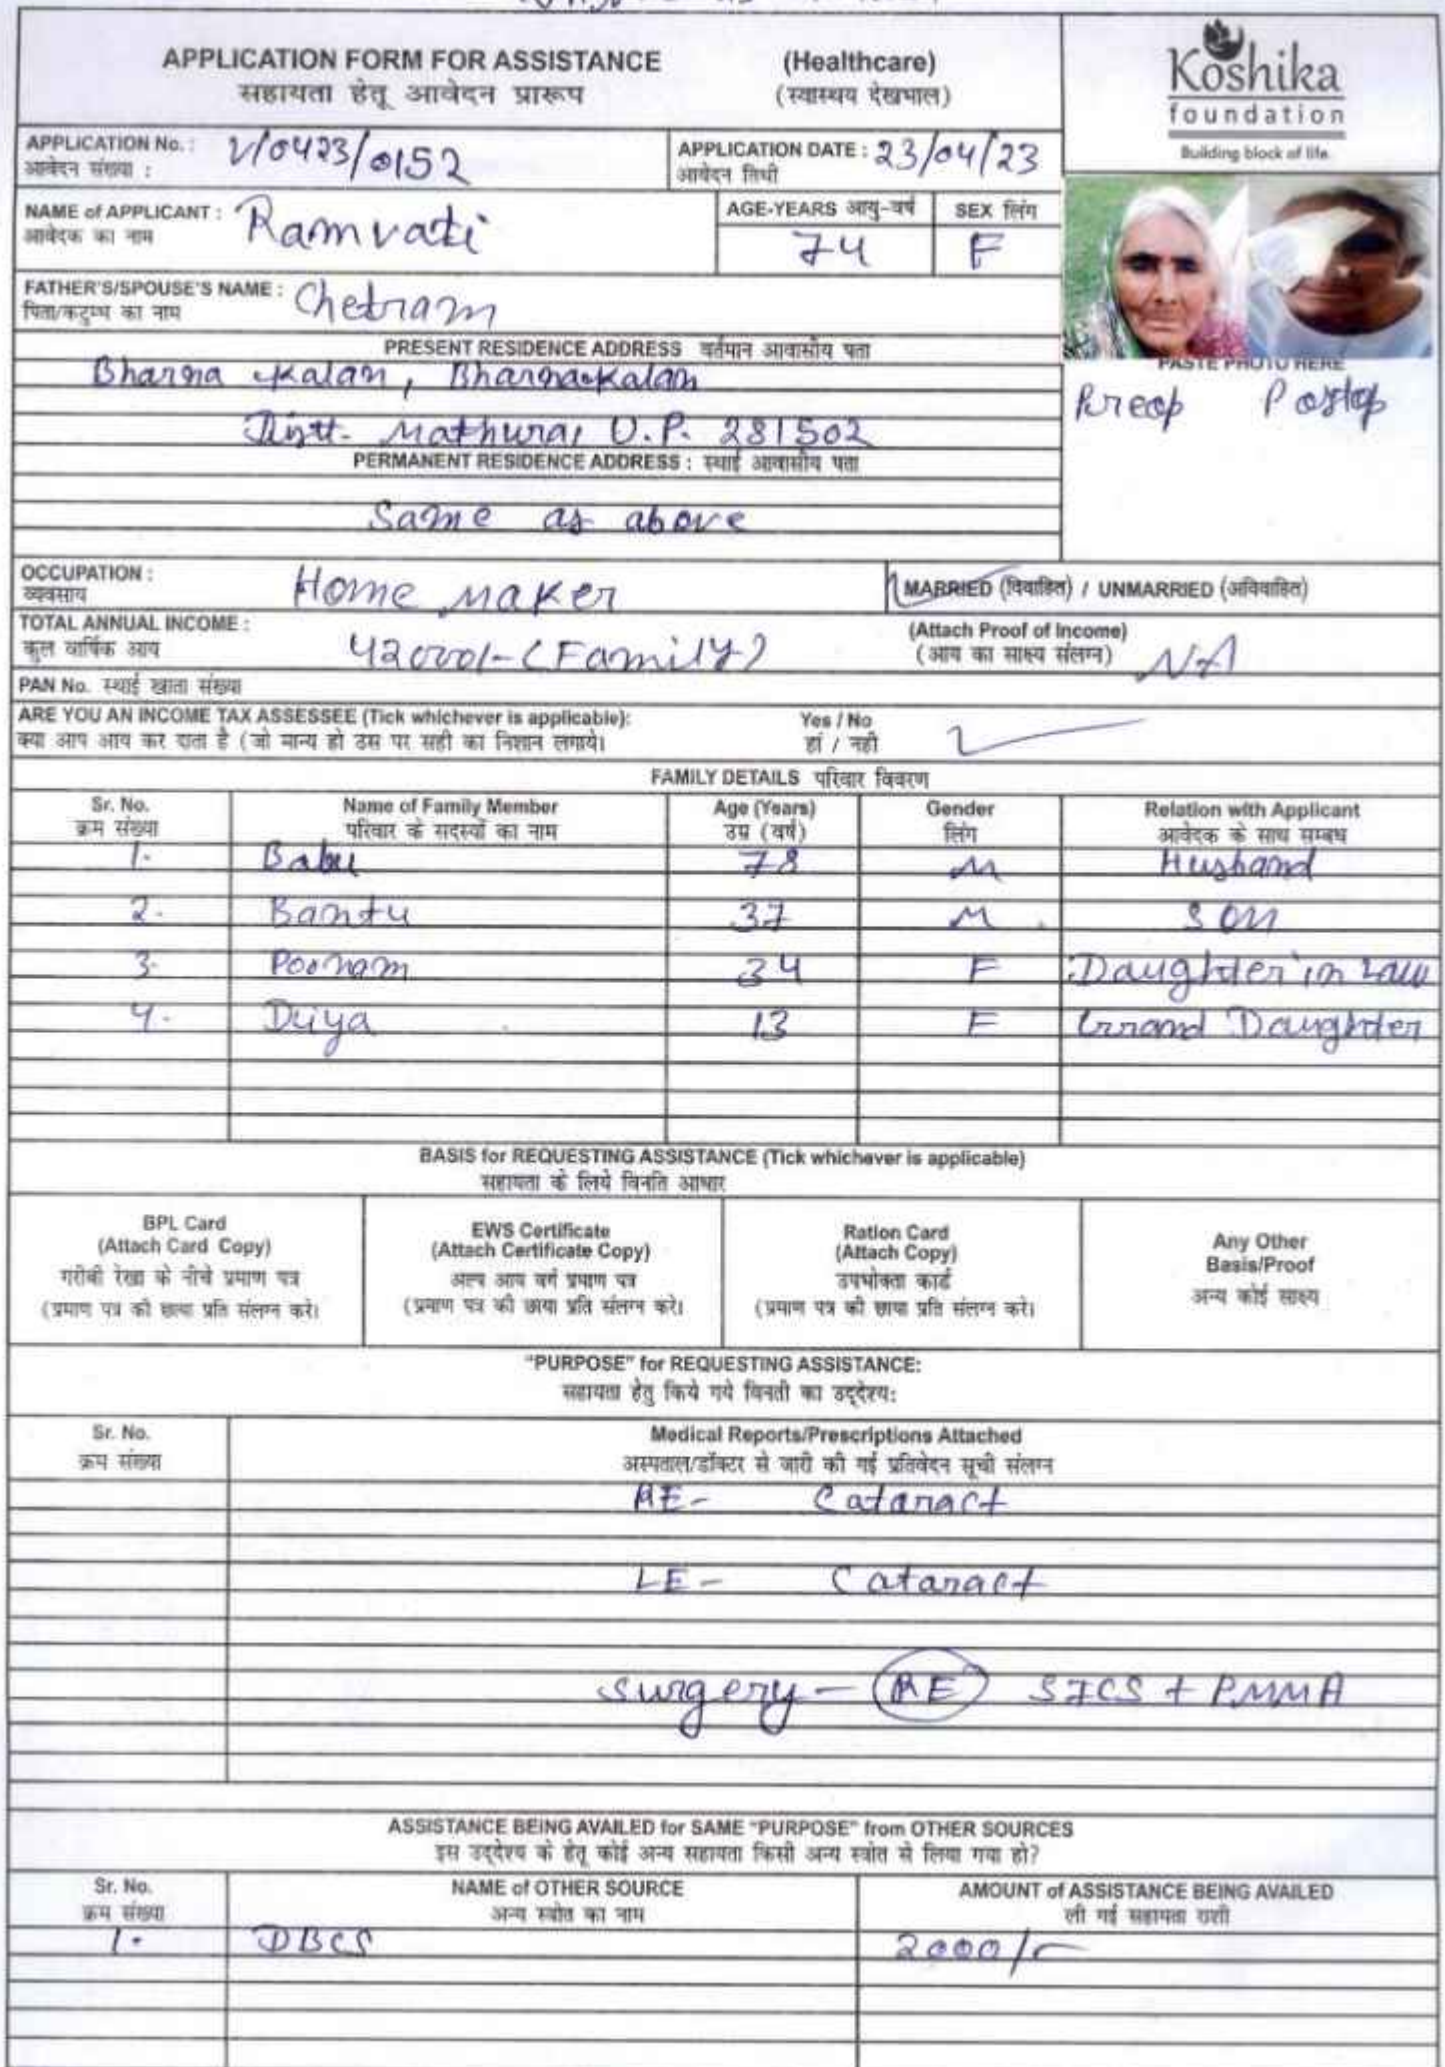 APPLICATION FORM FOR ASSISTANCE (Healthcare)
सहायता हेतू आवेदन प्रारूप (स्वास्थय देखभाल)
Koshika
foundation
Building block of life.
APPLICATION No. : V/0423/0152
आवेदन संख्या :
APPLICATION DATE : 23/04/23
आवेदन तिथी
NAME of APPLICANT : Ramvati
आवेदक का नाम
AGE-YEARS आयु-वर्ष SEX लिंग
74 F
FATHER'S/SPOUSE'S NAME : Chetram
पिता/कटुम्ब का नाम
PRESENT RESIDENCE ADDRESS वर्तमान आवासीय पता
Bharna Kalan, Bharna Kalan
Distt- Mathura, U.P. 281502
PASTE PHOTO HERE
Preop Postop
PERMANENT RESIDENCE ADDRESS : स्थाई आवासीय पता
Same as above
OCCUPATION : Home Maker
व्यवसाय
MARRIED (विवाहित) / UNMARRIED (अविवाहित)
TOTAL ANNUAL INCOME : 42000/- (Family)
कुल वार्षिक आय
(Attach Proof of Income) NA
(आय का साक्ष्य संलग्न)
PAN No. स्थाई खाता संख्या
ARE YOU AN INCOME TAX ASSESSEE (Tick whichever is applicable): Yes / No
क्या आप आय कर दाता है (जो मान्य हो उस पर सही का निशान लगाये। हां / नही
FAMILY DETAILS परिवार विवरण
Sr. No. Name of Family Member Age (Years) Gender Relation with Applicant
क्रम संख्या परिवार के सदस्यों का नाम उम्र (वर्ष) लिंग आवेदक के साथ सम्बध
1. Babu 78 M Husband
2. Bantu 37 M Son
3. Poonam 34 F Daughter in Law
4. Driya 13 F Grand Daughter
BASIS for REQUESTING ASSISTANCE (Tick whichever is applicable)
सहायता के लिये विनति आधार
BPL Card
(Attach Card Copy)
गरीबी रेखा के नीचे प्रमाण पत्र
(प्रमाण पत्र की छाया प्रति संलग्न करे।
EWS Certificate
(Attach Certificate Copy)
अल्प आय वर्ग प्रमाण पत्र
(प्रमाण पत्र की छाया प्रति संलग्न करे।
Ration Card
(Attach Copy)
उपभोक्ता कार्ड
(प्रमाण पत्र की छाया प्रति संलग्न करे।
Any Other
Basis/Proof
अन्य कोई साक्ष्य
"PURPOSE" for REQUESTING ASSISTANCE:
सहायता हेतु किये गये विनती का उद्देश्य:
Sr. No. Medical Reports/Prescriptions Attached
क्रम संख्या अस्पताल/डॉक्टर से जारी की गई प्रतिवेदन सूची संलग्न
RE- Cataract
LE- Cataract
Surgery - RE SICS + PMMA
ASSISTANCE BEING AVAILED for SAME "PURPOSE" from OTHER SOURCES
इस उद्देश्य के हेतू कोई अन्य सहायता किसी अन्य स्त्रोत से लिया गया हो?
Sr. No. NAME of OTHER SOURCE AMOUNT of ASSISTANCE BEING AVAILED
क्रम संख्या अन्य स्त्रोत का नाम ली गई सहायता राशी
1. DBCS 2000/-